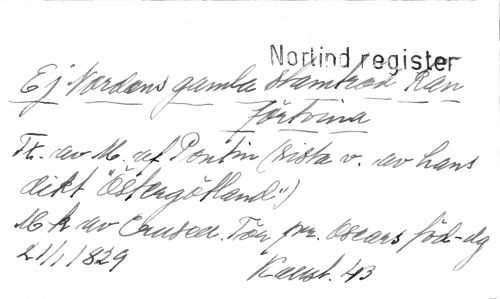 Nortind register
Ej Nordens gamla stamträd kan
förtvina
Tt. av M. af Pontin (sista v. av hans
dikt "Östergötland")
M k av Crusell. Tör pr. Oscars föd-dg
21/1 1829
Kaest. 43